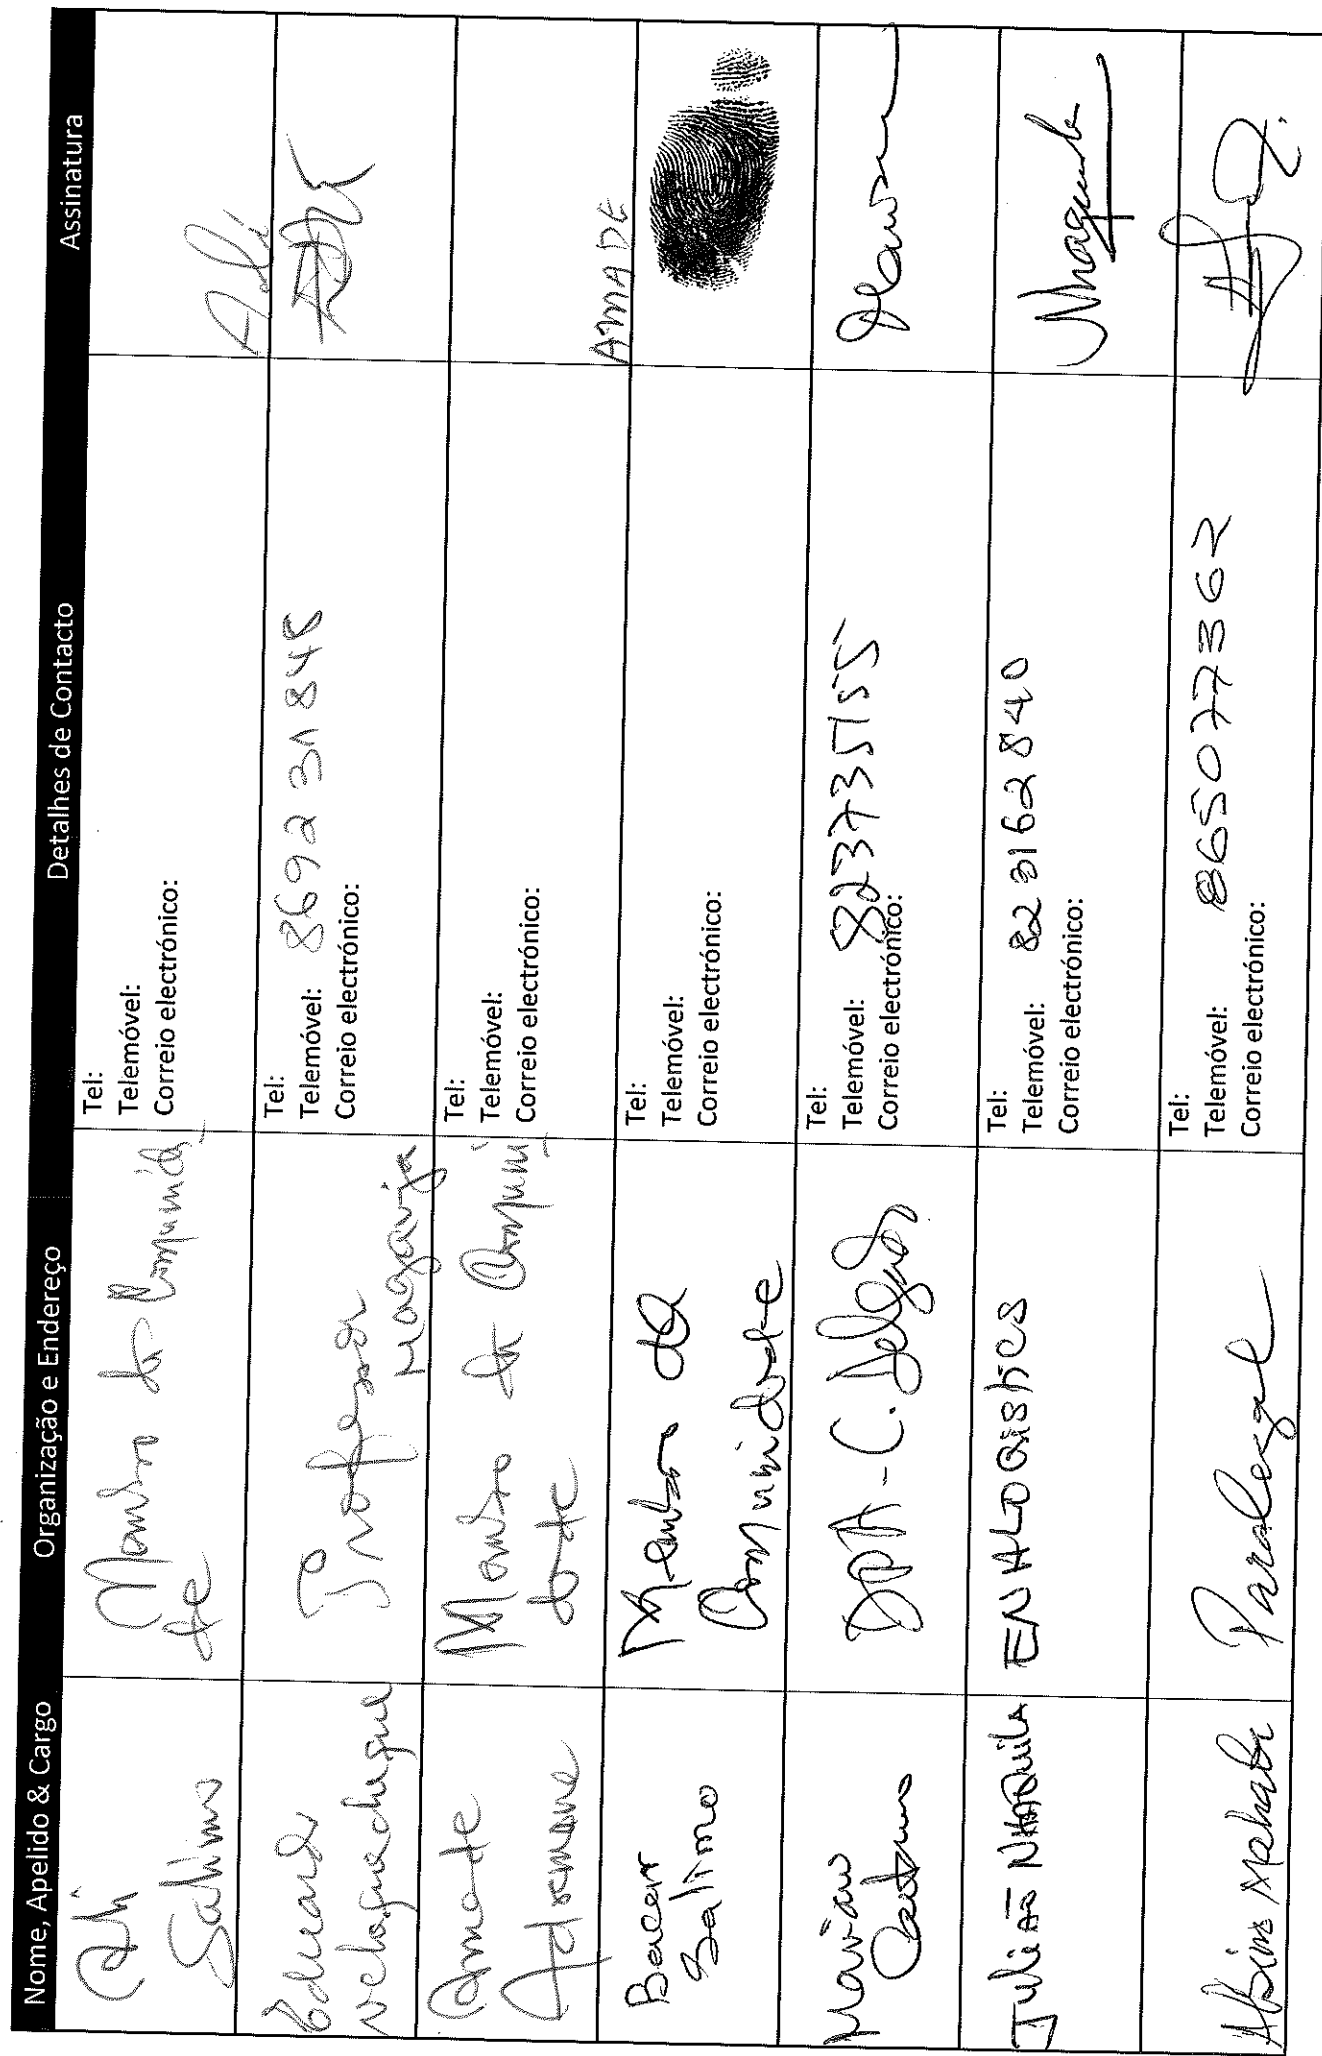 Nome, Apelido & Cargo Organização e Endereço Detalhes de Contacto Assinatura
Ali
Salimo
Membro da Comunida
de
Tel:
Telemóvel:
Correio electrónico:
Ali
Eduardo
Professor
Tel:
Telemóvel: 869231848
Correio electrónico:
Amade
Adremane
Membro da Comuni
dade
Tel:
Telemóvel:
Correio electrónico:
AMADE
Bacar
Salimo
Membro da
Comunidade
Tel:
Telemóvel:
Correio electrónico:
Mariano
DPA - C. Delgado
Tel:
Telemóvel: 823735155
Correio electrónico:
Julião NHAQuila
ENH LOGistics
Tel:
Telemóvel: 82 3162840
Correio electrónico:
Paralegal
Tel:
Telemóvel: 865077362
Correio electrónico: